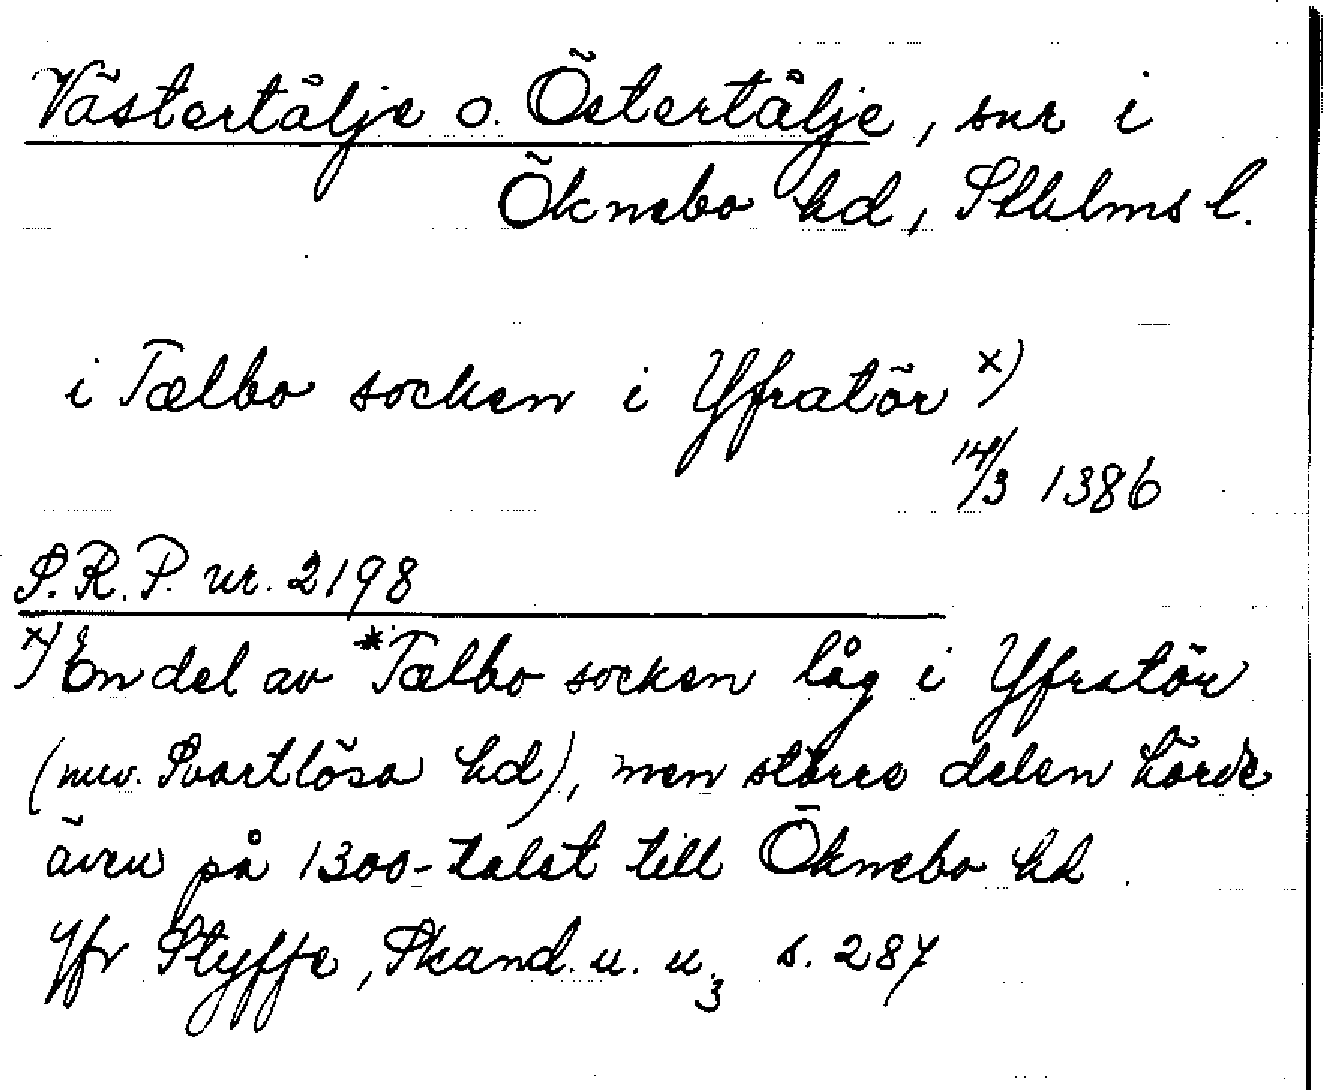 Västertälje o. Östertälje, snr i
Öknebo hd, Sthlms l.
i Tælbo socken i Yfratör x)
14/3 1386
S.R.P. nr. 2198
x) En del av *Tælbo socken låg i Yfratör
(nuv. Svartlösa hd), men större delen hörde
även på 1300-talet till Öknebo hd
Jfr Styffe, Skand. u. u.3 s. 287